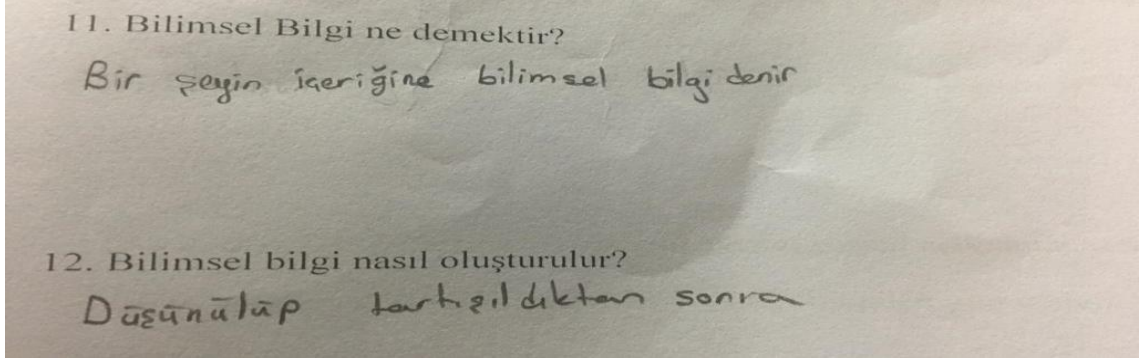 11. Bilimsel Bilgi ne demektir?
Bir şeyin içeriğine bilimsel bilgi denir
12. Bilimsel bilgi nasıl oluşturulur?
Düşünülüp tartışıldıktan sonra